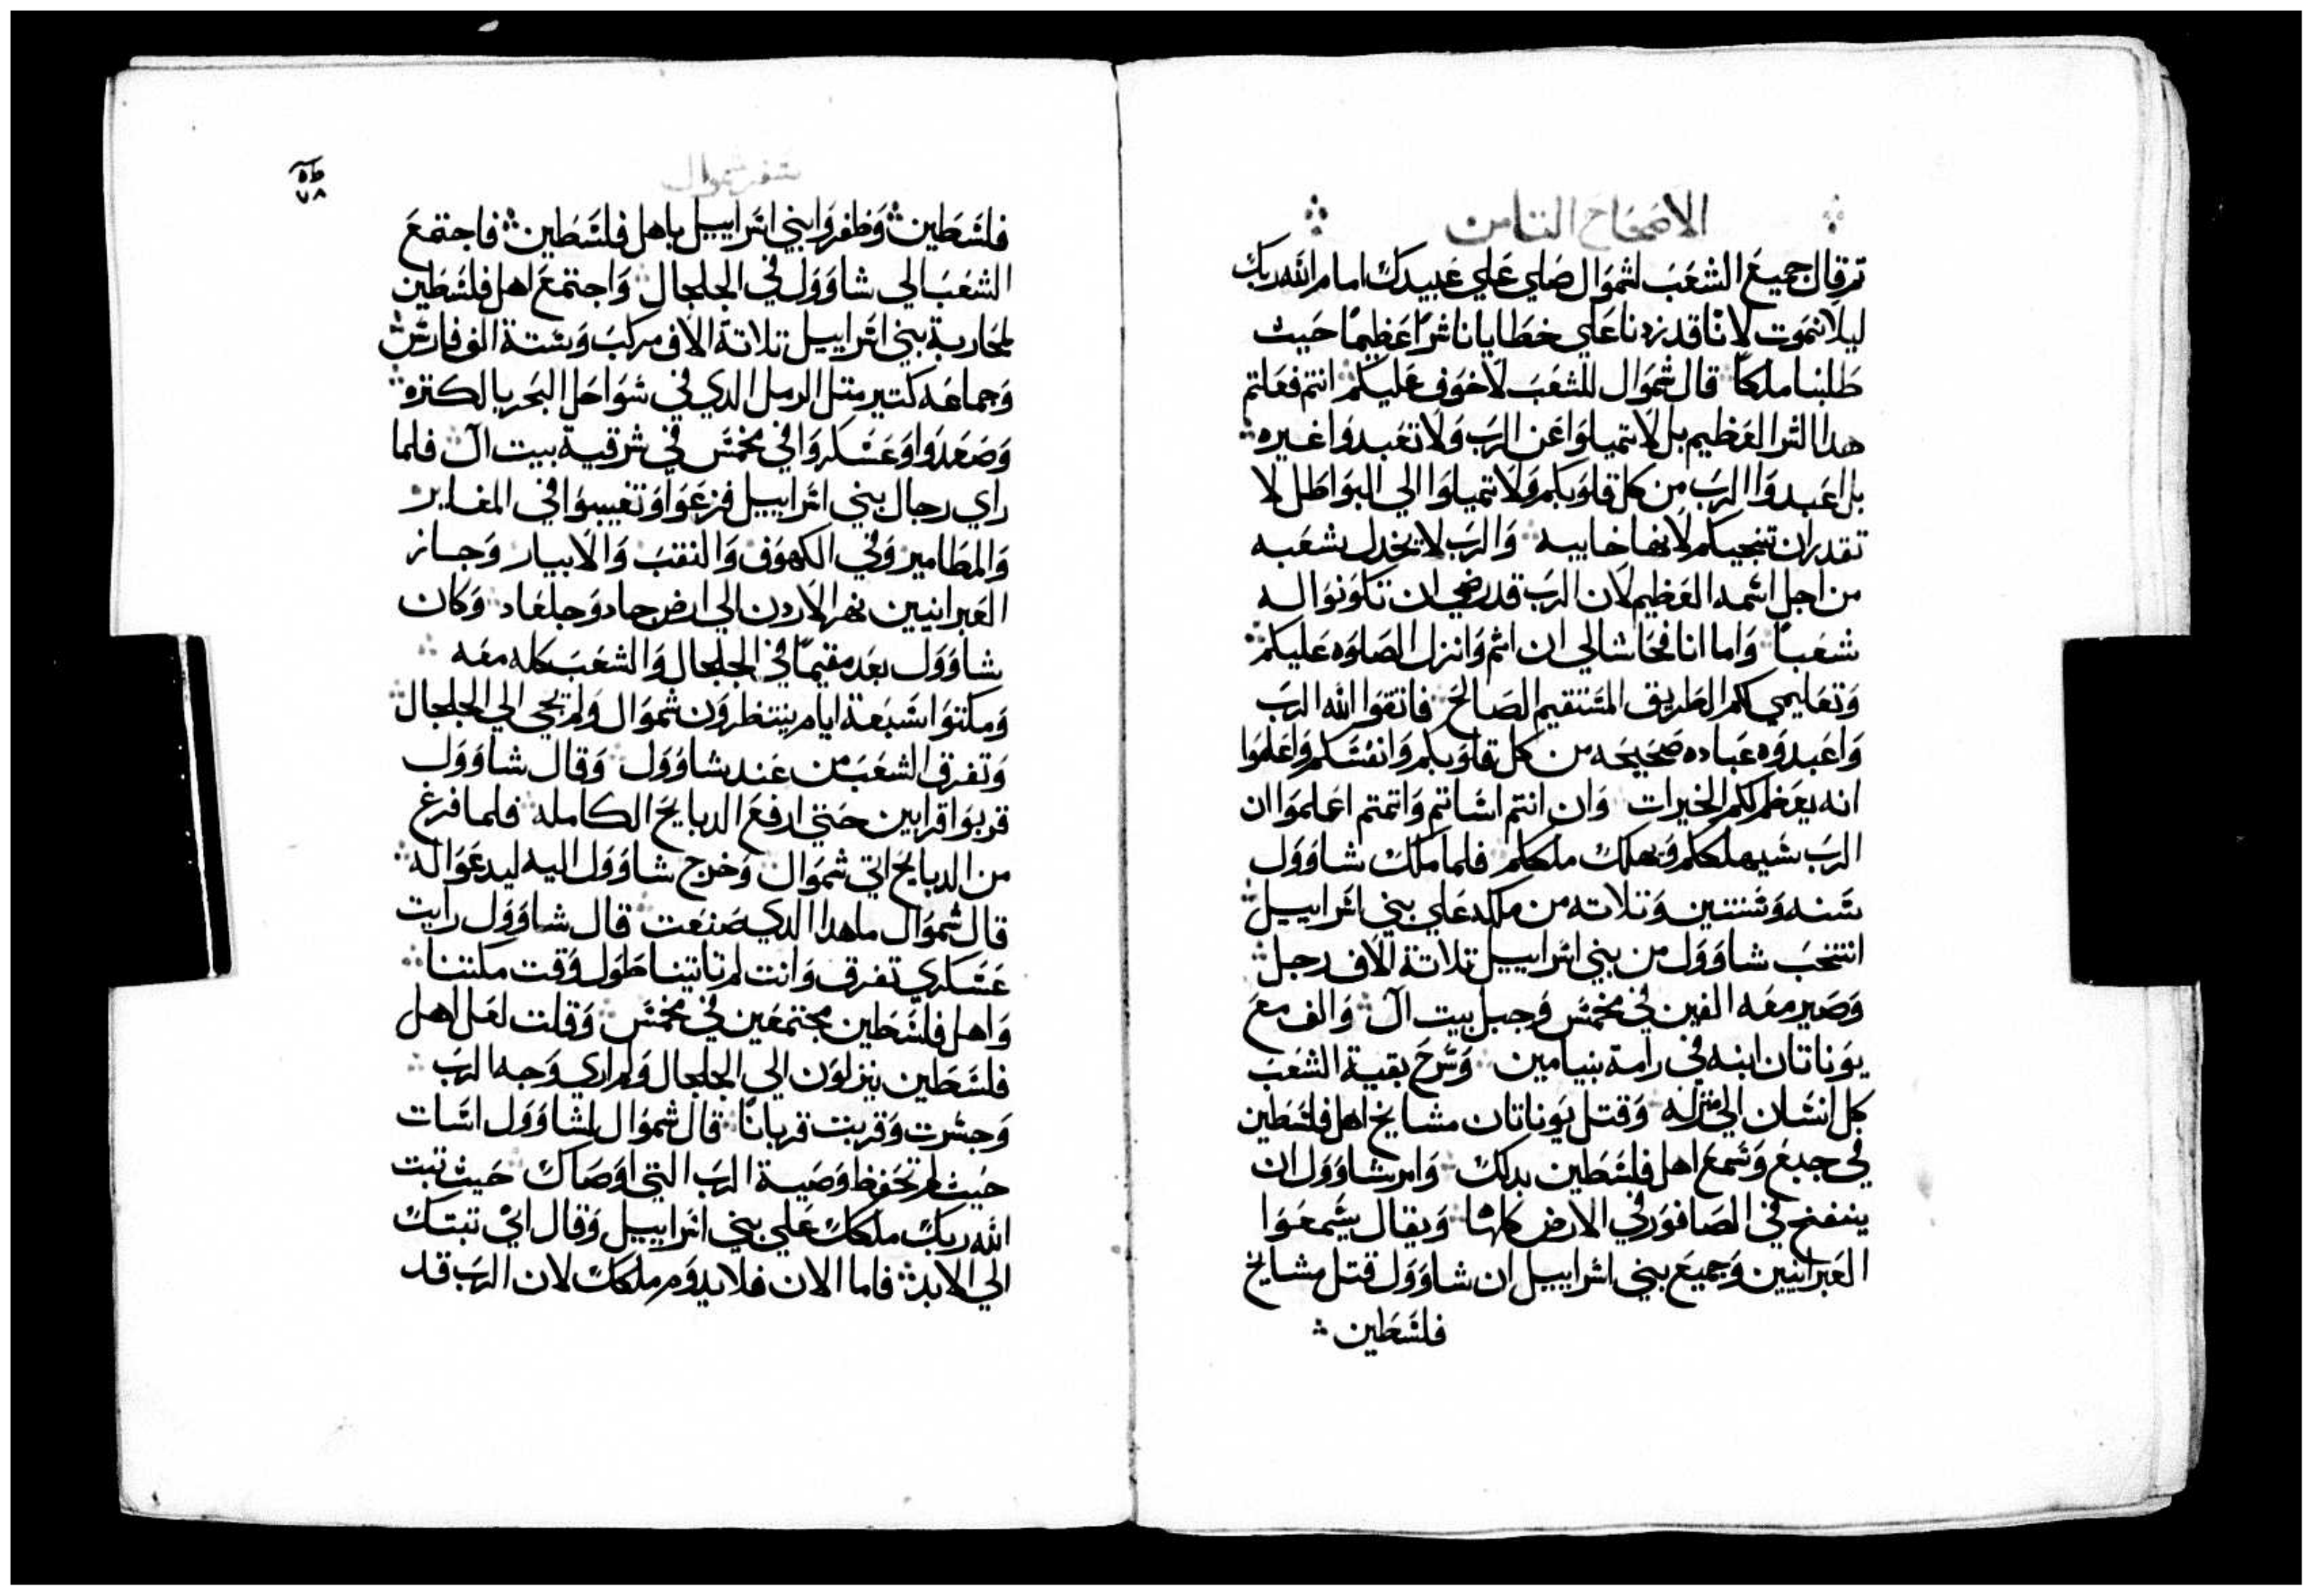 الاصحاح التامن
تم قال جميع الشعب لشموال صلي علي عبيدك امام الله ربك
ليلا نموت لانا قد زدنا علي خطايانا شرا عظيمًا حيث
طلبنا ملكاً قال شموال للشعب لا خوف عليكم انتم فعلتم
هدا الشر العظيم بل لا تميلوا عن الرب ولا تعبدوا غيره
بل اعبدوا الرب من كل قلوبكم ولا تميلوا الي البواطل لا
تقدر ان تنجيكم لانها خاييبه والرب لا يخدل شعبه
من اجل اسمه العظيم لان الرب قد رضي ان تكونوا له
شعبا واما انا فحاشا لي ان اتم وانزل الصلوه عليكم
وتعليمي لكم الطريق المستقيم الصالح فاتقوا الله الرب
واعبدوه عباده صحيحه من كل قلوبكم وانفسكم واعلموا
انه يعظم لكم الخيرات وان انتم اساتم واتمتم اعلموا ان
الرب سيهلككم ويهلك ملككم فلما ملك شاوول
سنه وسنتين وتلاته من ملكه علي بني اسراييل
انتخب شاوول من بني اسراييل تلاتة الاف رجل
وصير معه الفين في مخمس وجبل بيت ال والف مع
يوناتان ابنه في رامة بنيامين وسرح بقية الشعب
كل انسان الي منزله وقتل يوناتان مشايخ اهل فلسطين
في جبع وسمع اهل فلسطين بدلك وامر شاوول ان
ينفخ في الصافور في الارض كلها ويقال يسمعوا
العبرانيين وجميع بني اسراييل ان شاوول قتل مشايخ
فلسطين
سفر شموال
٧٨
فلسطين وظفروا بني اسراييل باهل فلسطين فاجتمع
الشعب الي شاوول في الجلجال واجتمع اهل فلسطين
لمحاربة بني اسراييل تلاتة الاف مركب وستة الف فارس
وجماعه كتير متل الرمل الدي في سواحل البحر بالكتره
وصعدوا وعسكروا في مخمس في شرقية بيت ال فلما
راي رجال بني اسراييل فزعوا وتغيبوا في المغاير
والمطامير وفي الكهوف والنقب والابيار وجاز
العبرانيين نهر الاردن الي ارض جاد وجلعاد وكان
شاوول بعد مقيمًا في الجلجال والشعب كله معه
ومكتوا سبعة ايام ينتظرون شموال ولم يجي الي الجلجال
وتفرق الشعب من عند شاوول وقال شاوول
قربوا قرابين حتي ارفع الدبايح الكامله فلما فرغ
من الدبايح اتي شموال وخرج شاوول اليه ليدعوا له
قال شموال ما هدا الدي صنعت قال شاوول رايت
عسكري تفرق وانت لم تاتينا طول وقت مكتنا
واهل فلسطين مجتمعين في مخمس وقلت لعل اهل
فلسطين ينزلون الي الجلجال ولم اري وجه الرب
وجسرت وقربت قربانًا قال شموال لشاوول اسات
حيث لم تحفظ وصية الرب التي اوصاك حيث تبت
الله ربك ملكك علي بني اسراييل وقال اني تبتك
الي الابد فاما الان فلا يدوم ملكك لان الرب قد